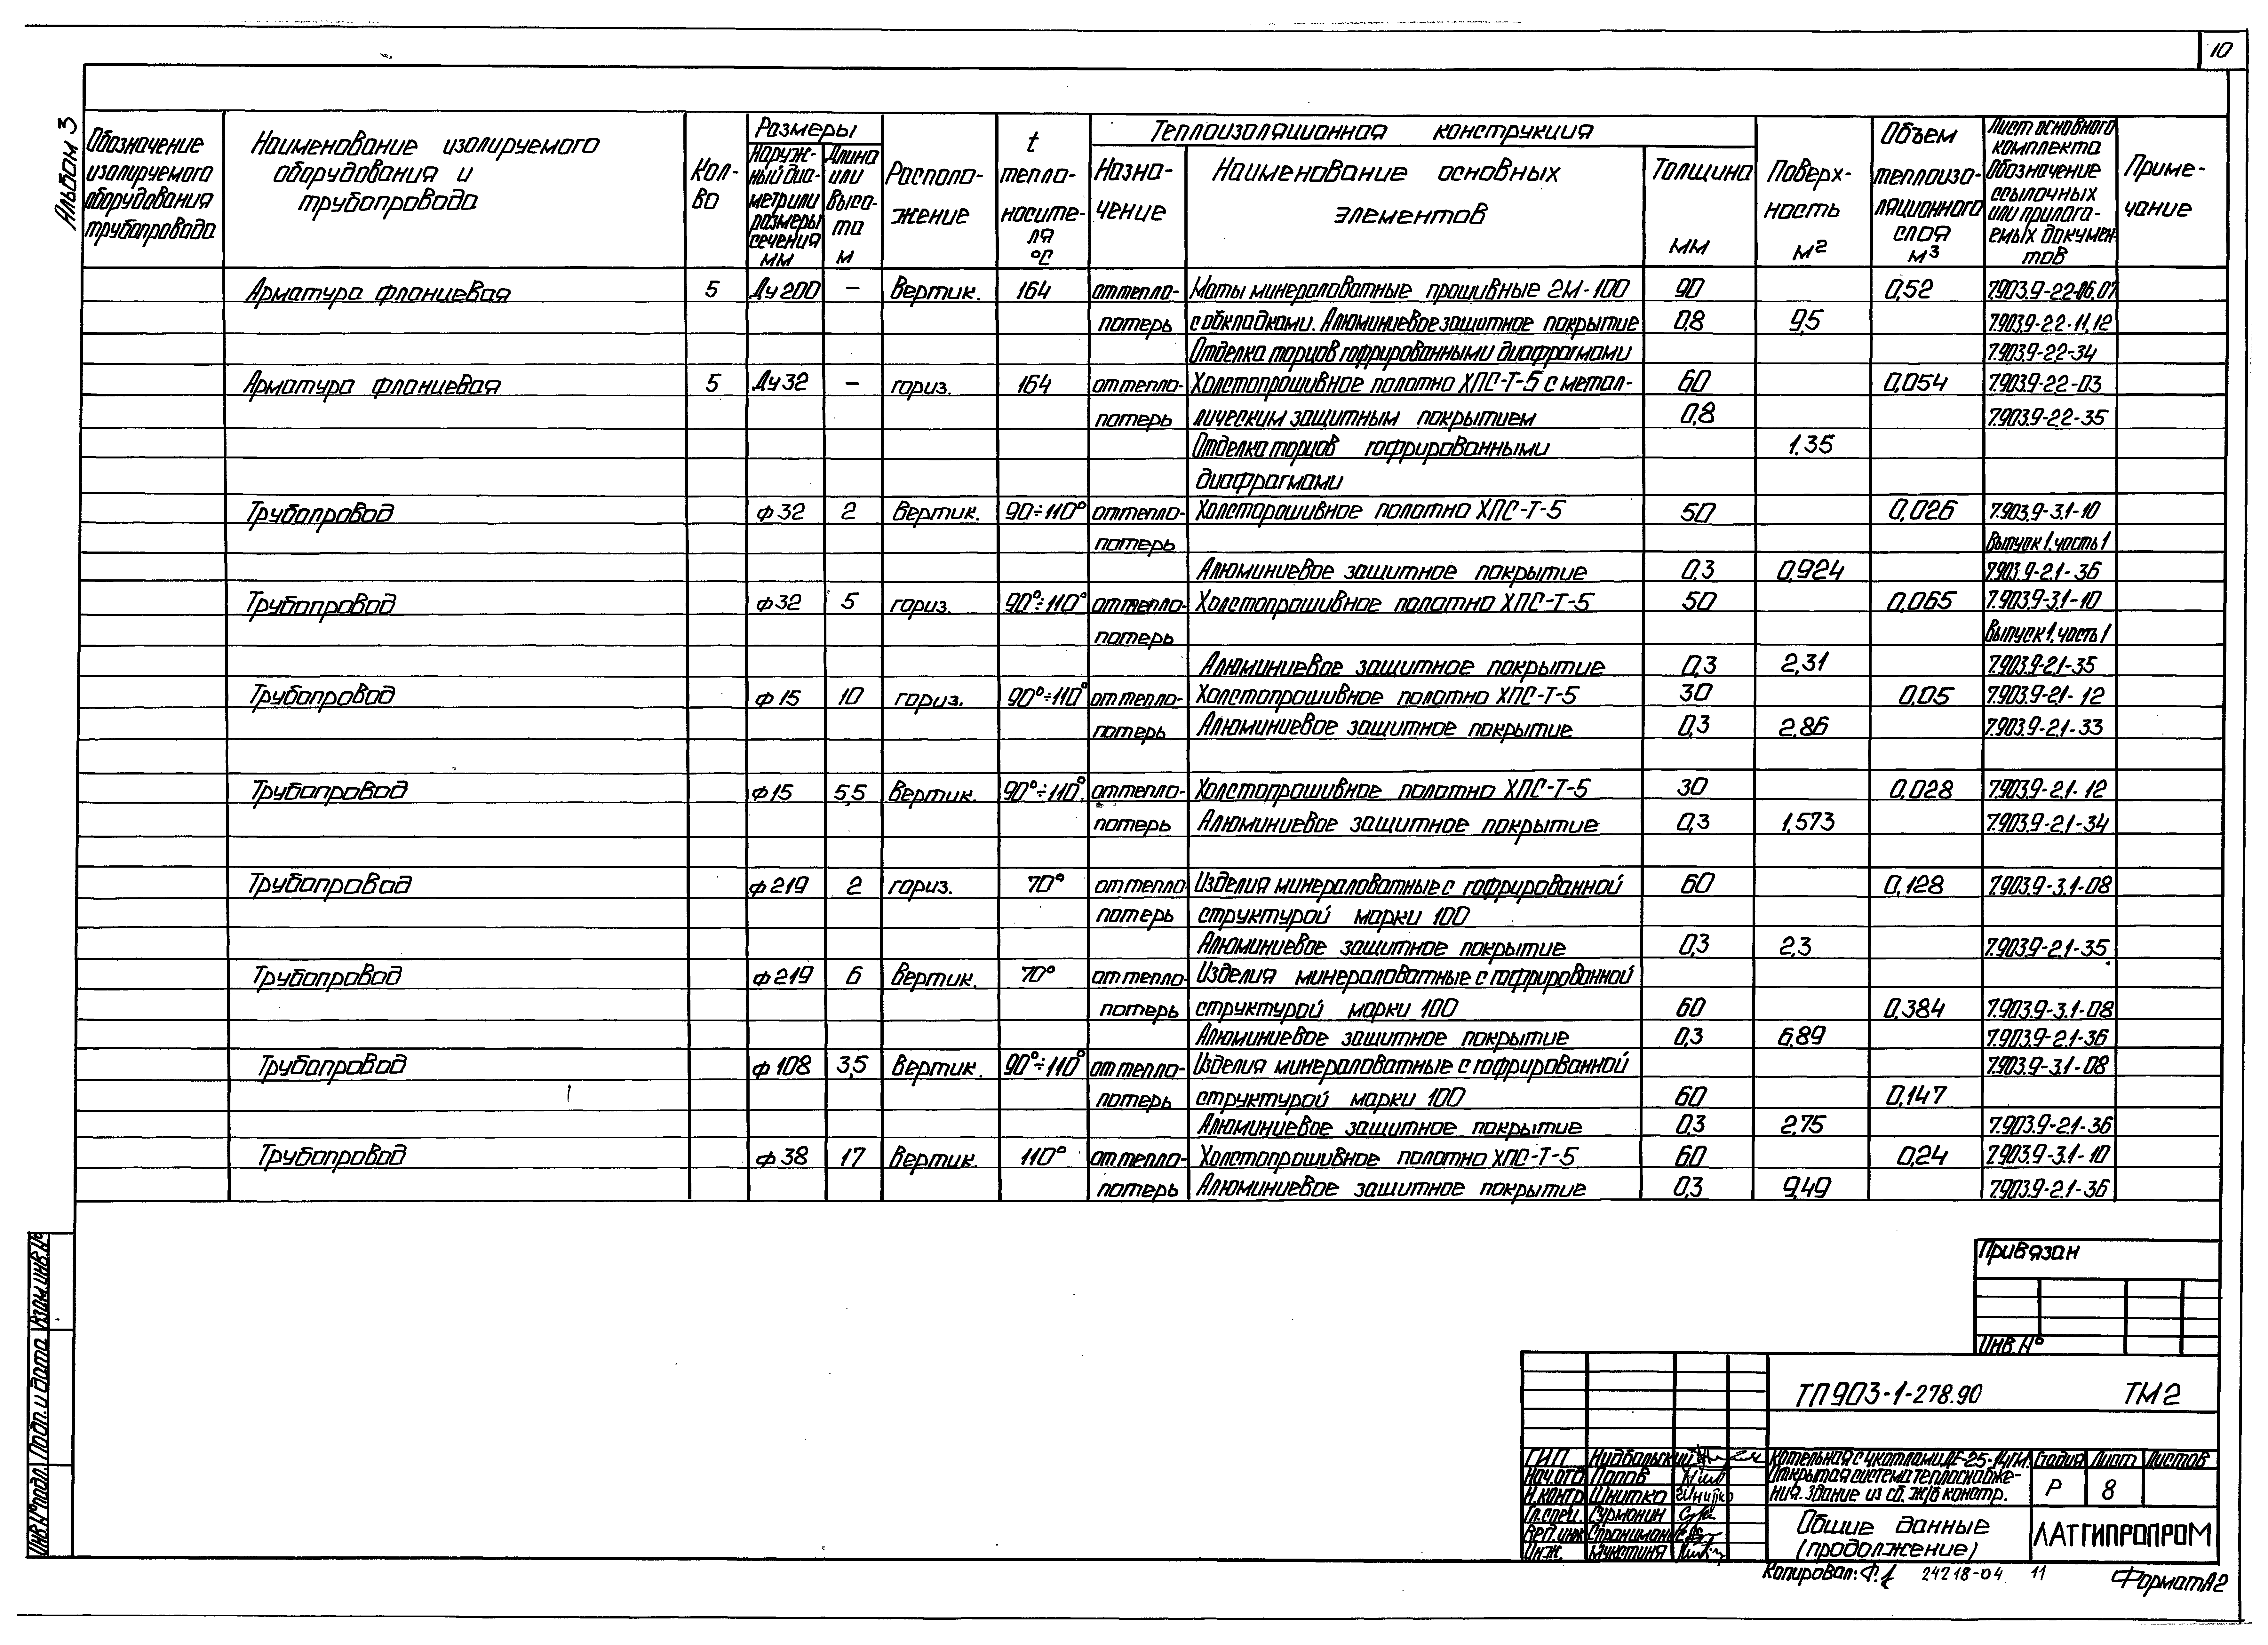 10
Альбом 3
Обозначение изолируемого оборудования трубопровода
Наименование изолируемого оборудования и трубопровода
Кол-во
Размеры
Наруж-ный диа-метр или размеры сечения мм
Длина или высо-та м
Располо-жение
t тепло-носите-ля °С
Теплоизоляционная конструкция
Назна-чение
Наименование основных элементов
Толщина мм
Поверх-ность м²
Объем теплоизо-ляционного слоя м³
Лист основного комплекта Обозначение ссылочных или прилага-емых докумен-тов
Приме-чание
Арматура фланцевая 5 Ду 200 – Вертик. 164 от тепло- Маты минераловатные прошивные 2М-100 90 0,52 7.903.9-2.2-06,07
потерь с обкладками. Алюминиевое защитное покрытие 0,8 9,5 7.903.9-2.2-11,12
Отделка торцов гофрированными диафрагмами 7.903.9-2.2-34
Арматура фланцевая 5 Ду 32 – гориз. 164 от тепло- Холстопрошивное полотно ХПС-Т-5 с метал- 60 0,054 7.903.9-2.2-03
потерь лическим защитным покрытием 0,8 7.903.9-2.2-35
Отделка торцов гофрированными 1.35
диафрагмами
Трубопровод ф 32 2 Вертик. 90÷110° от тепло- Холсторошивное полотно ХПС-Т-5 50 0,026 7.903.9-3.1-10
потерь Выпуск 1, часть 1
Алюминиевое защитное покрытие 0,3 0,924 7.903.9-2.1-36
Трубопровод ф 32 5 гориз. 90°÷110° от тепло- Холстопрошивное полотно ХПС-Т-5 50 0,065 7.903.9-3.1-10
потерь Выпуск 1, часть 1
Алюминиевое защитное покрытие 0,3 2,31 7.903.9-2.1-35
Трубопровод ф 15 10 гориз. 90°÷110° от тепло- Холстопрошивное полотно ХПС-Т-5 30 0,05 7.903.9-2.1-12
потерь Алюминиевое защитное покрытие 0,3 2,86 7.903.9-2.1-33
Трубопровод ф 15 5,5 Вертик. 90°÷110° от тепло- Холстопрошивное полотно ХПС-Т-5 30 0,028 7.903.9-2.1-12
потерь Алюминиевое защитное покрытие 0,3 1,573 7.903.9-2.1-34
Трубопровод ф 219 2 гориз. 70° от тепло Изделия минераловатные с гофрированной 60 0,128 7.903.9-3.1-08
потерь структурой марки 100
Алюминиевое защитное покрытие 0,3 2,3 7.903.9-2.1-35
Трубопровод ф 219 6 Вертик. 70° от тепло- Изделия минераловатные с гофрированной
потерь структурой марки 100 60 0,384 7.903.9-3.1-08
Алюминиевое защитное покрытие 0.3 6,89 7.903.9-2.1-36
Трубопровод ф 108 3,5 Вертик. 90°÷110° от тепло- Изделия минераловатные с гофрированной 7.903.9-3.1-08
потерь структурой марки 100 60 0,147
Алюминиевое защитное покрытие 0.3 2,75 7.903.9-2.1-36
Трубопровод ф 38 17 Вертик. 110° от тепло- Холстопрошивное полотно ХПС-Т-5 60 0,24 7.903.9-3.1-10
потерь Алюминиевое защитное покрытие 0,3 9,49 7.903.9-2.1-36
Инв.№ подл. Подп. и дата Взам.инв.№
Привязан
Инв.№
ТП 903-1-278.90 ТМ 2
ГИП Нидбальский
Нач.отд Попов
Н.контр Шнитко
Гл.спец. Сурмонин
Вед.инж
Инж. Мукотина
Котельная с 4 котлами ДЕ-25-14ГМ.
Открытая система теплоснабже-
ния. Здание из сб. ж/б констр.
Стадия Лист Листов
Р 8
Общие данные
(продолжение)
ЛАТГИПРОПРОМ
Копировал: 24218-04 11 Формат А2